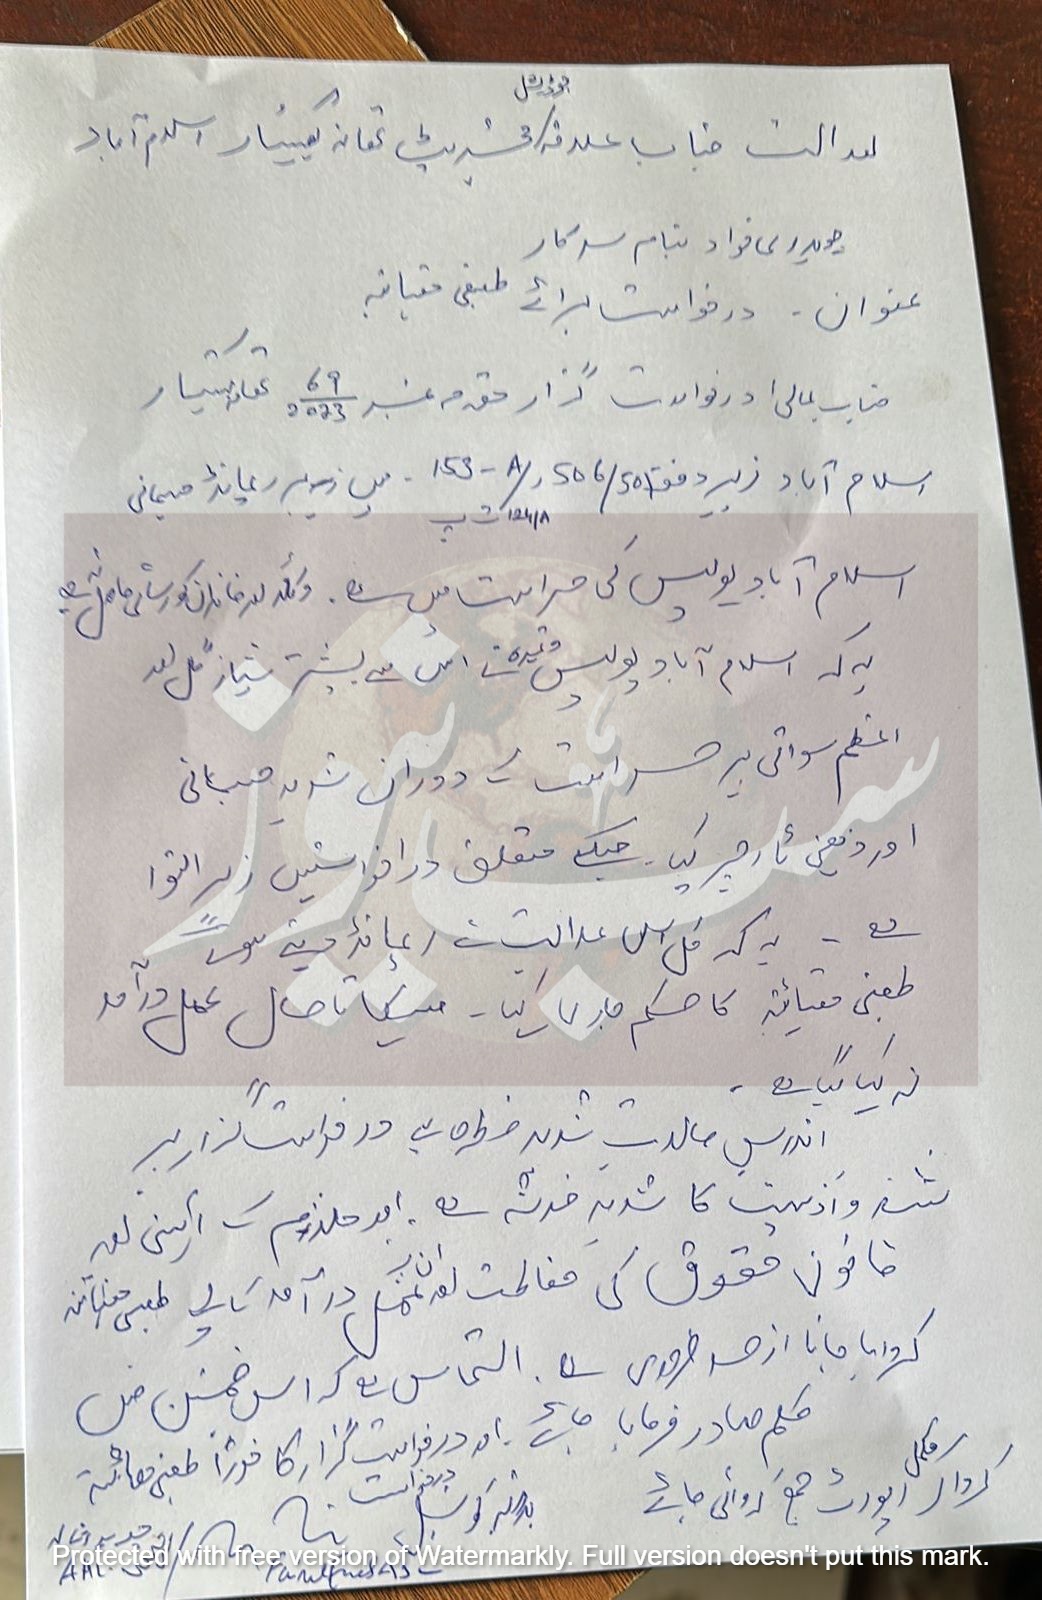 جوڈیشل
بعدالت جناب علاقہ مجسٹریٹ تھانہ کہسار اسلام آباد
چوہدری فواد بنام سرکار
عنوان - درخواست برائے طبی معائنہ
جناب عالی! درخواست گزار مقدمہ نمبر 69/2023 تھانہ کہسار
اسلام آباد زیر دفعہ 153-A, 506/501 - میں زیر ریمانڈ جسمانی
124/A ت پ
اسلام آباد پولیس کی حراست میں ہے۔ وکلاء اور خاندان کو رسائی حاصل نہ ہے
یہ کہ اسلام آباد پولیس نے اس سے پیشتر شہباز گل اور
اعظم سواتی پر حراست کے دوران شدید جسمانی
اور ذہنی ٹارچر کیا۔ جسکے متعلق درخواستیں زیر التوا
ہے - یہ کہ قبل ازیں عدالت نے ریمانڈ دیتے ہوئے
طبی معائنہ کا حکم جاری کیا - جس پر تاحال عمل درآمد
نہ کیا گیا ہے -
اندریں حالات شدید خطرہ ہے درخواست گزار پر
تشدد و اذیت کا شدید خدشہ ہے۔ اور ملزم کے آئینی اور
قانونی حقوق کی حفاظت اور ان پر عمل درآمد کے لیے طبی معائنہ
کروایا جانا از حد ضروری ہے۔ التماس ہے کہ اس ضمن میں
حکم صادر فرمایا جائے۔ اور درخواست گزار کا فوراً طبی معائنہ
کروا کر مکمل رپورٹ جمع کروائی جائے
درخواست
بذریعہ کونسل
سب نیوز
Protected with free version of Watermarkly. Full version doesn't put this mark.